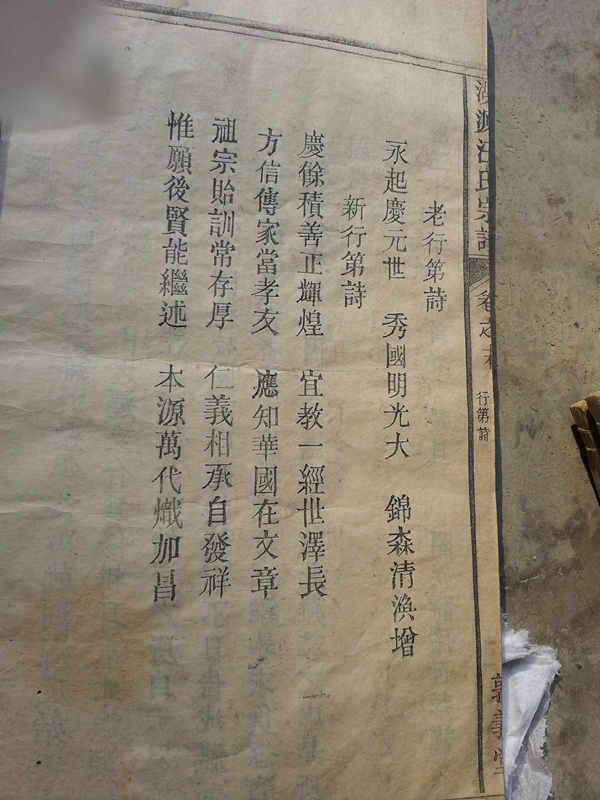 源汪氏宗譜 卷之末 行第詩
老行第詩
永起慶元世 秀國明光大 錦森清渙增
新行第詩
慶餘積善正輝煌 宜教一經世澤長
方信傳家當孝友 應知華國在文章
祖宗貽訓常存厚 仁義相承自發祥
惟願後賢能繼述 本源萬代熾加昌
義堂